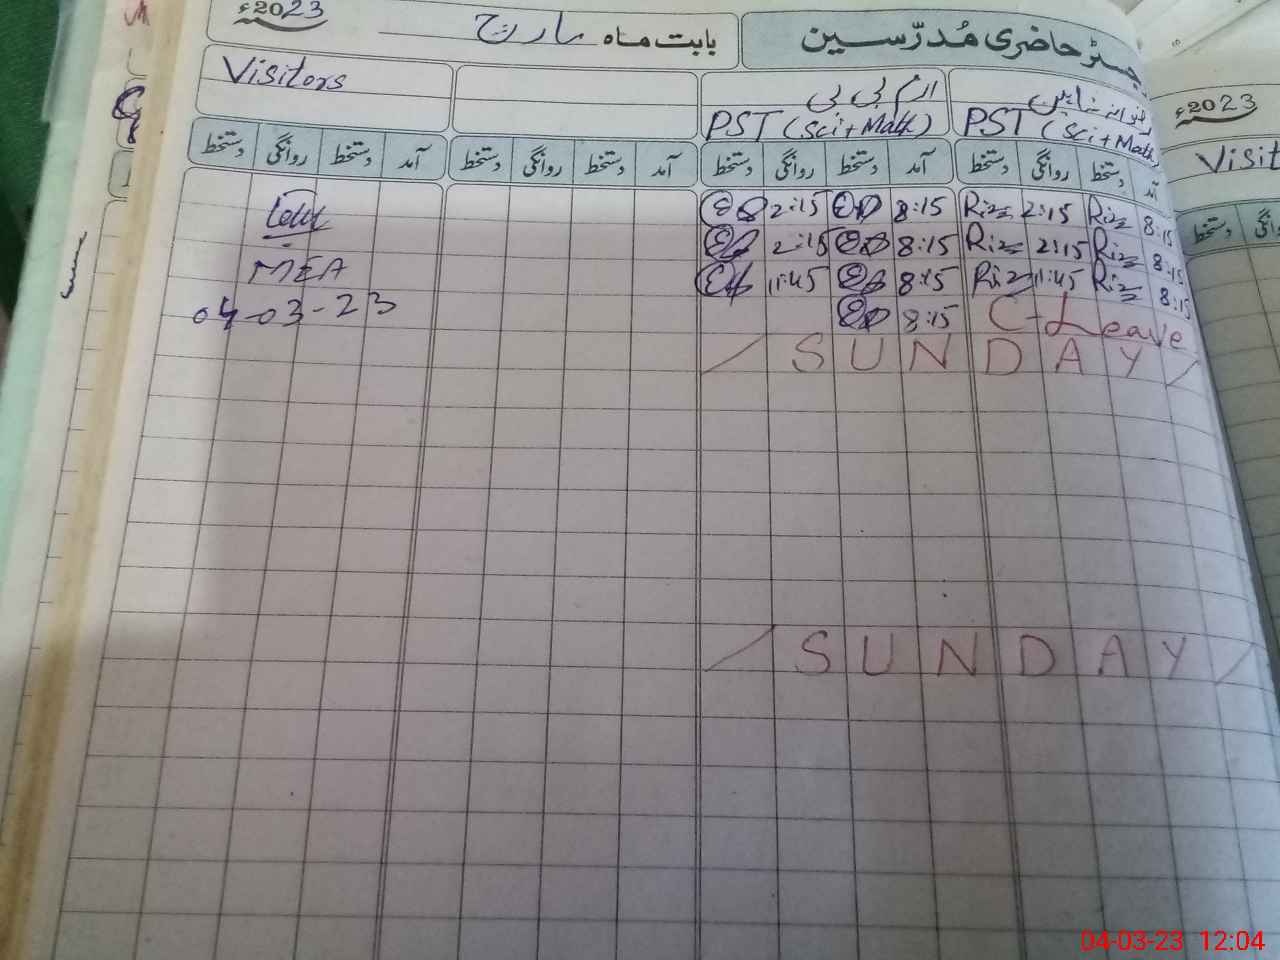 رجسٹر حاضری مُدرّسین بابت ماہ مارچ 2023ء
Visitors
ارم بی بی
PST (Sci + Math) PST (Sci + Math)
آمد دستخط روانگی دستخط آمد دستخط روانگی دستخط آمد دستخط روانگی دستخط آمد دستخط روانگی دستخط
8:15 Riz 2:15 Riz 8:15 2:15
8:15 Riz 2:15 Riz 8:15 2:15
8:15 Riz 11:45 Riz 8:15 11:45
C-Leave 8:15
MEA
04-03-23
/ S U N D A Y /
/ S U N D A Y /
2023ء
Visit
دستخط
04-03-23 12:04